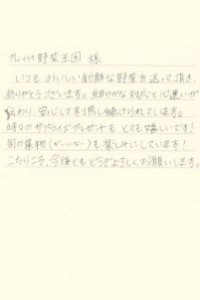 九州野菜王国 様
いつもおいしい新鮮な野菜を送って頂き、
ありがとうございます。細やかな対応と心遣いが
伝わり、安心して利用し続けられています。
時々のサプライズプレゼントもとても嬉しいです！
旬の果物 も楽しみにしています！
こちらこそ、今後ともどうぞよろしくお願いします。